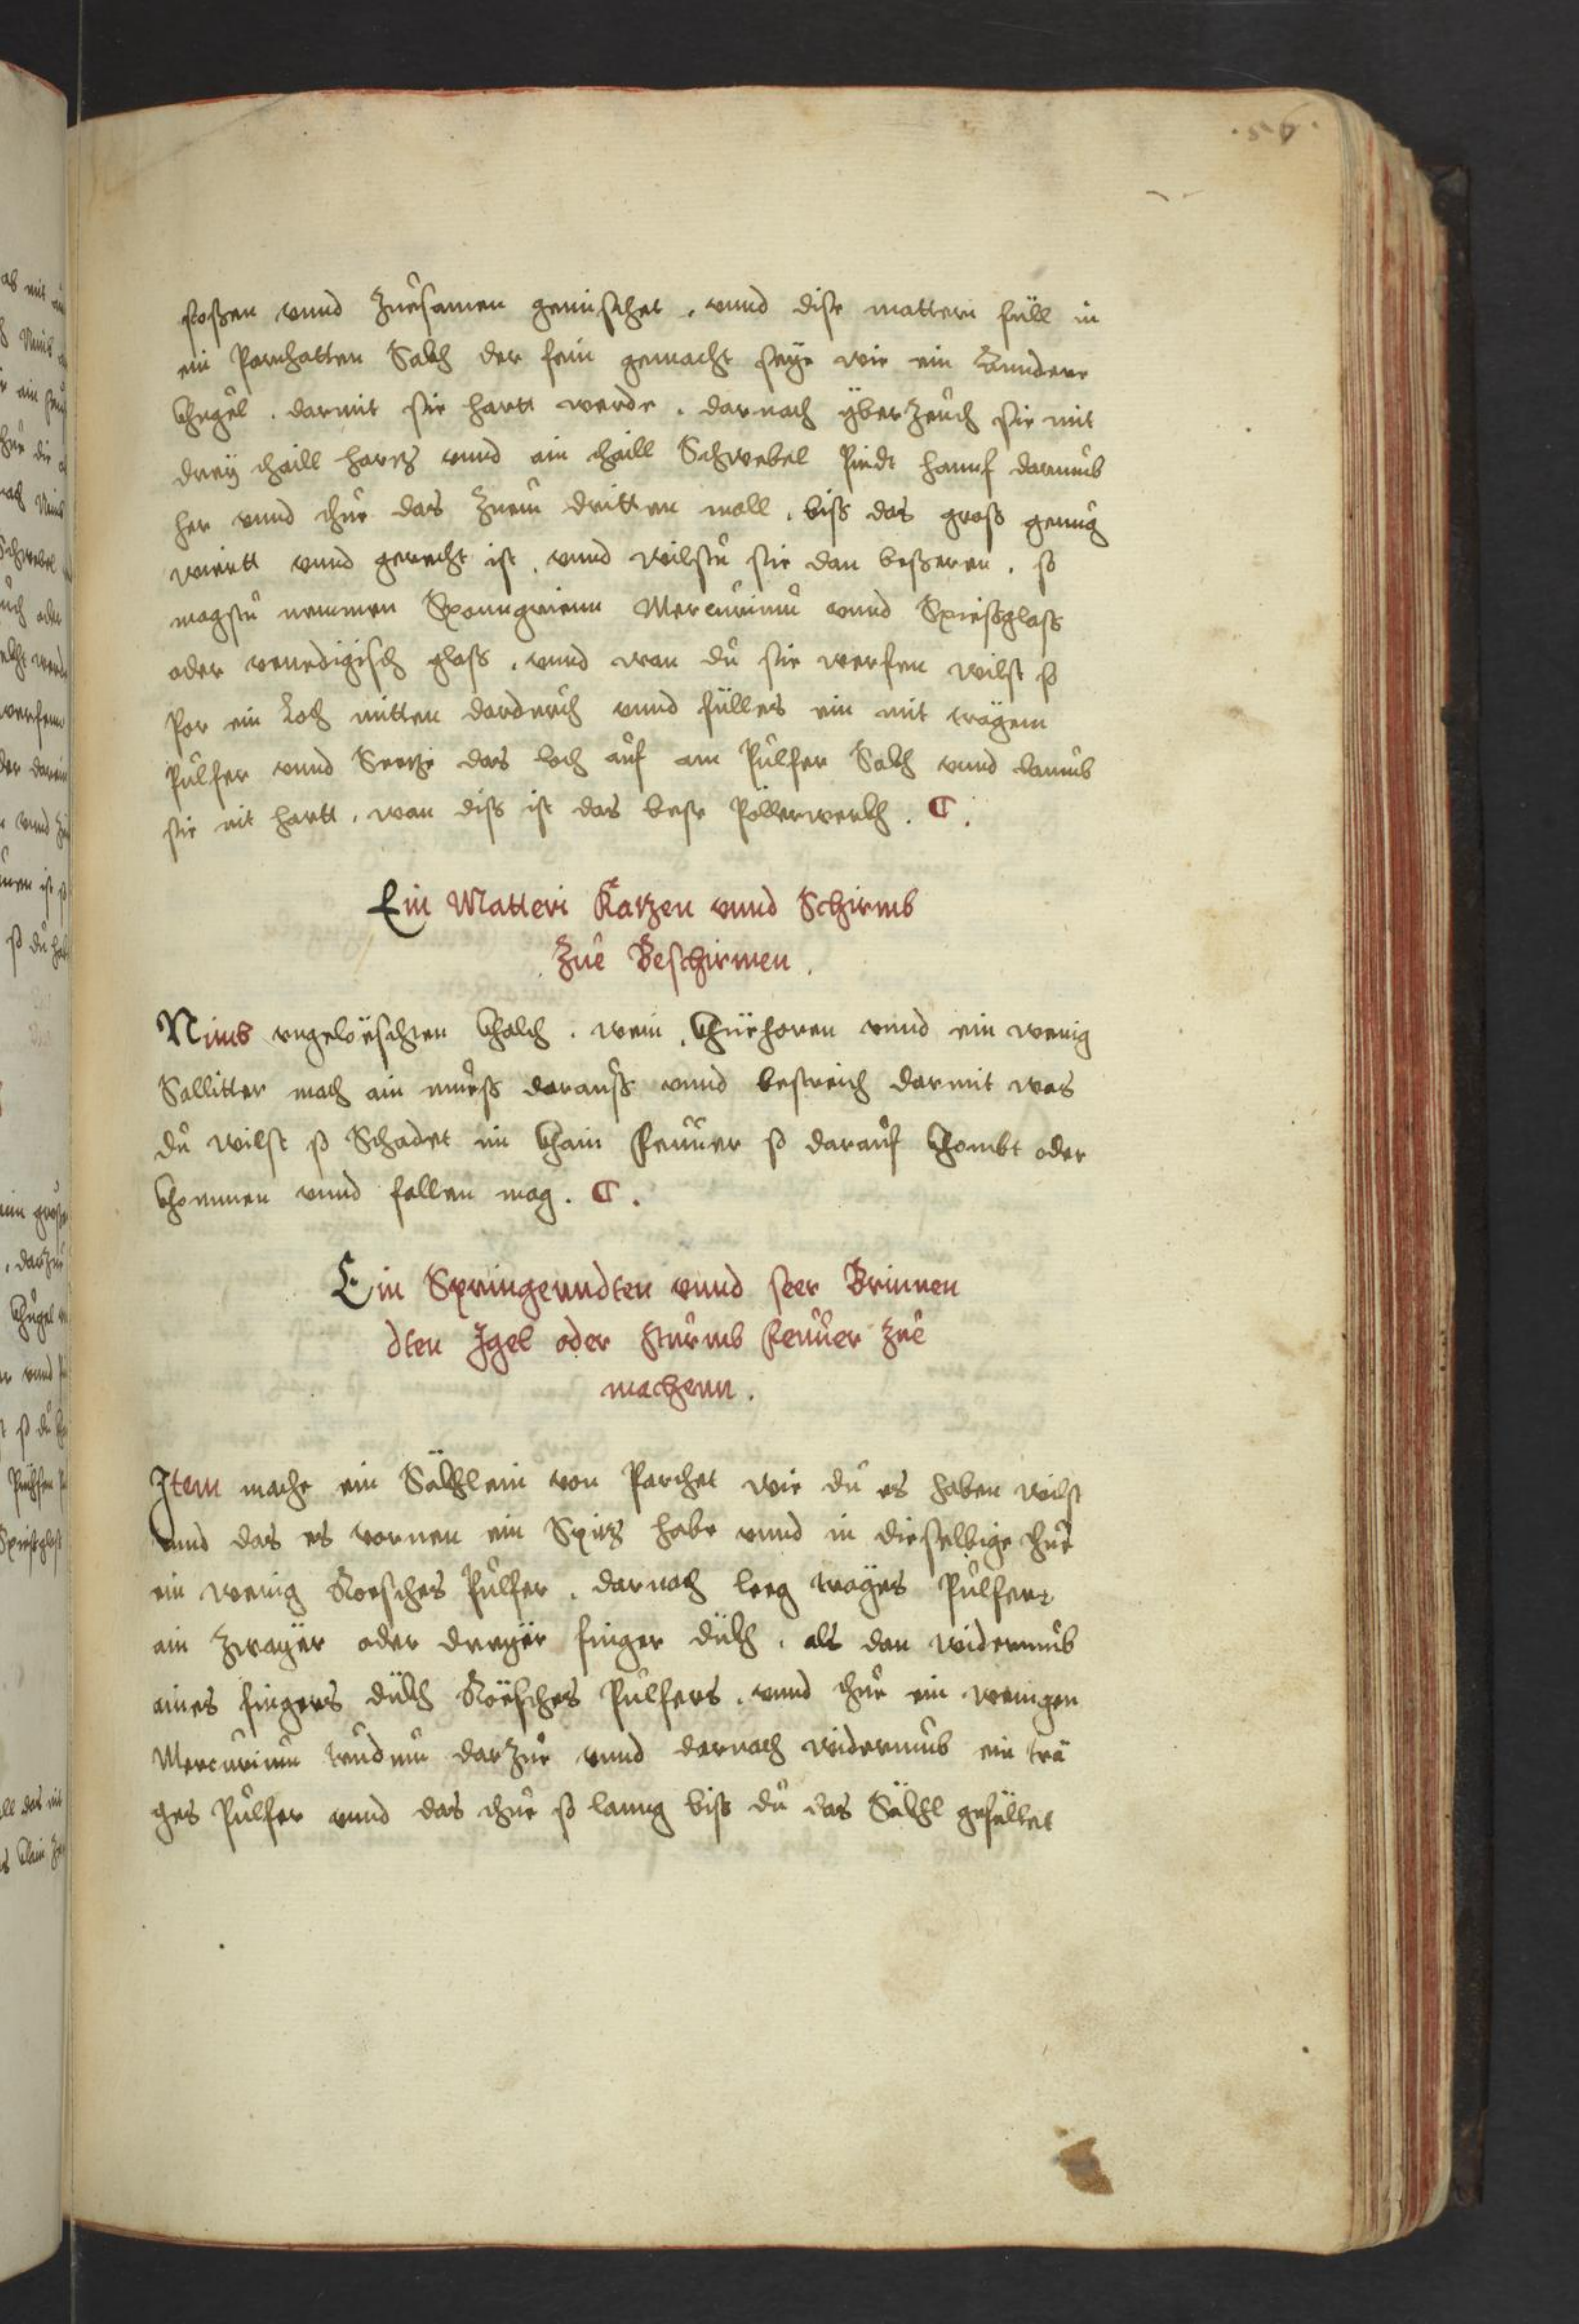 .56.
stoßen vnnd Zuesamen gemischet, vnnd dise matteri füll in
ein Parchatten Sakh der sein gemacht seye wie ein Anndere
Khugel, darmit sie hartt werde, darnach yberzeuch sie mit
dreÿ thaill hartz vnnd ain thaill Schwebel Pindt hannf darumb
her vnnd thue das Zuem dritten mall, biss das gross genüg
wirtt vnnd gerecht ist, vnnd wilstu sie dan besseren, so
magstu nemmen Sponngrienn Mercurium vnnd Spiessglass
oder venedigisch glass, vnnd wan du sie werfen wilst so
Por ein Loch mitten dardurch vnnd fülles ein mit trägem
Pulfer vnnd Seetze das loch auf am Pulfer Sakh vnnd
sie nit hartt, wan diss ist das beste Pöllerwerkh. C.
Ein Matteri Katzen vnnd Schirmb
Zue Beschirmen.
Nimb vngelöschten Khalch, wein, Khüehoren vnnd ein wenig
Sallitter mach ain muess darauss vnnd bestreich darmit was
du wilst so Schadet im Khain Feuuer so darauf Khombt oder
Khommen vnnd fallen mag. C.
Ein Springenndten vnnd seer Brinnen
dten Igel oder Sturmb Feuuer Zue
machenn.
Item mache ein Säkhlein von Parchet wie du es haben wilst
vnnd das es vornen ein Spitz habe vnnd in dieselbige thue
ein wenig Roesches Pulfer, darnach leeg träges Pulfers
ain Zwayer oder dreyer finger dükh, als dan widerumb
aines fingers dükh Röesches Pulfers, vnnd thue ein wenigen
Mercurium darzue vnnd darnach widerumb ein trä
ges Pulfer vnnd das thue so lanng biss du das Säkhl gefüllet